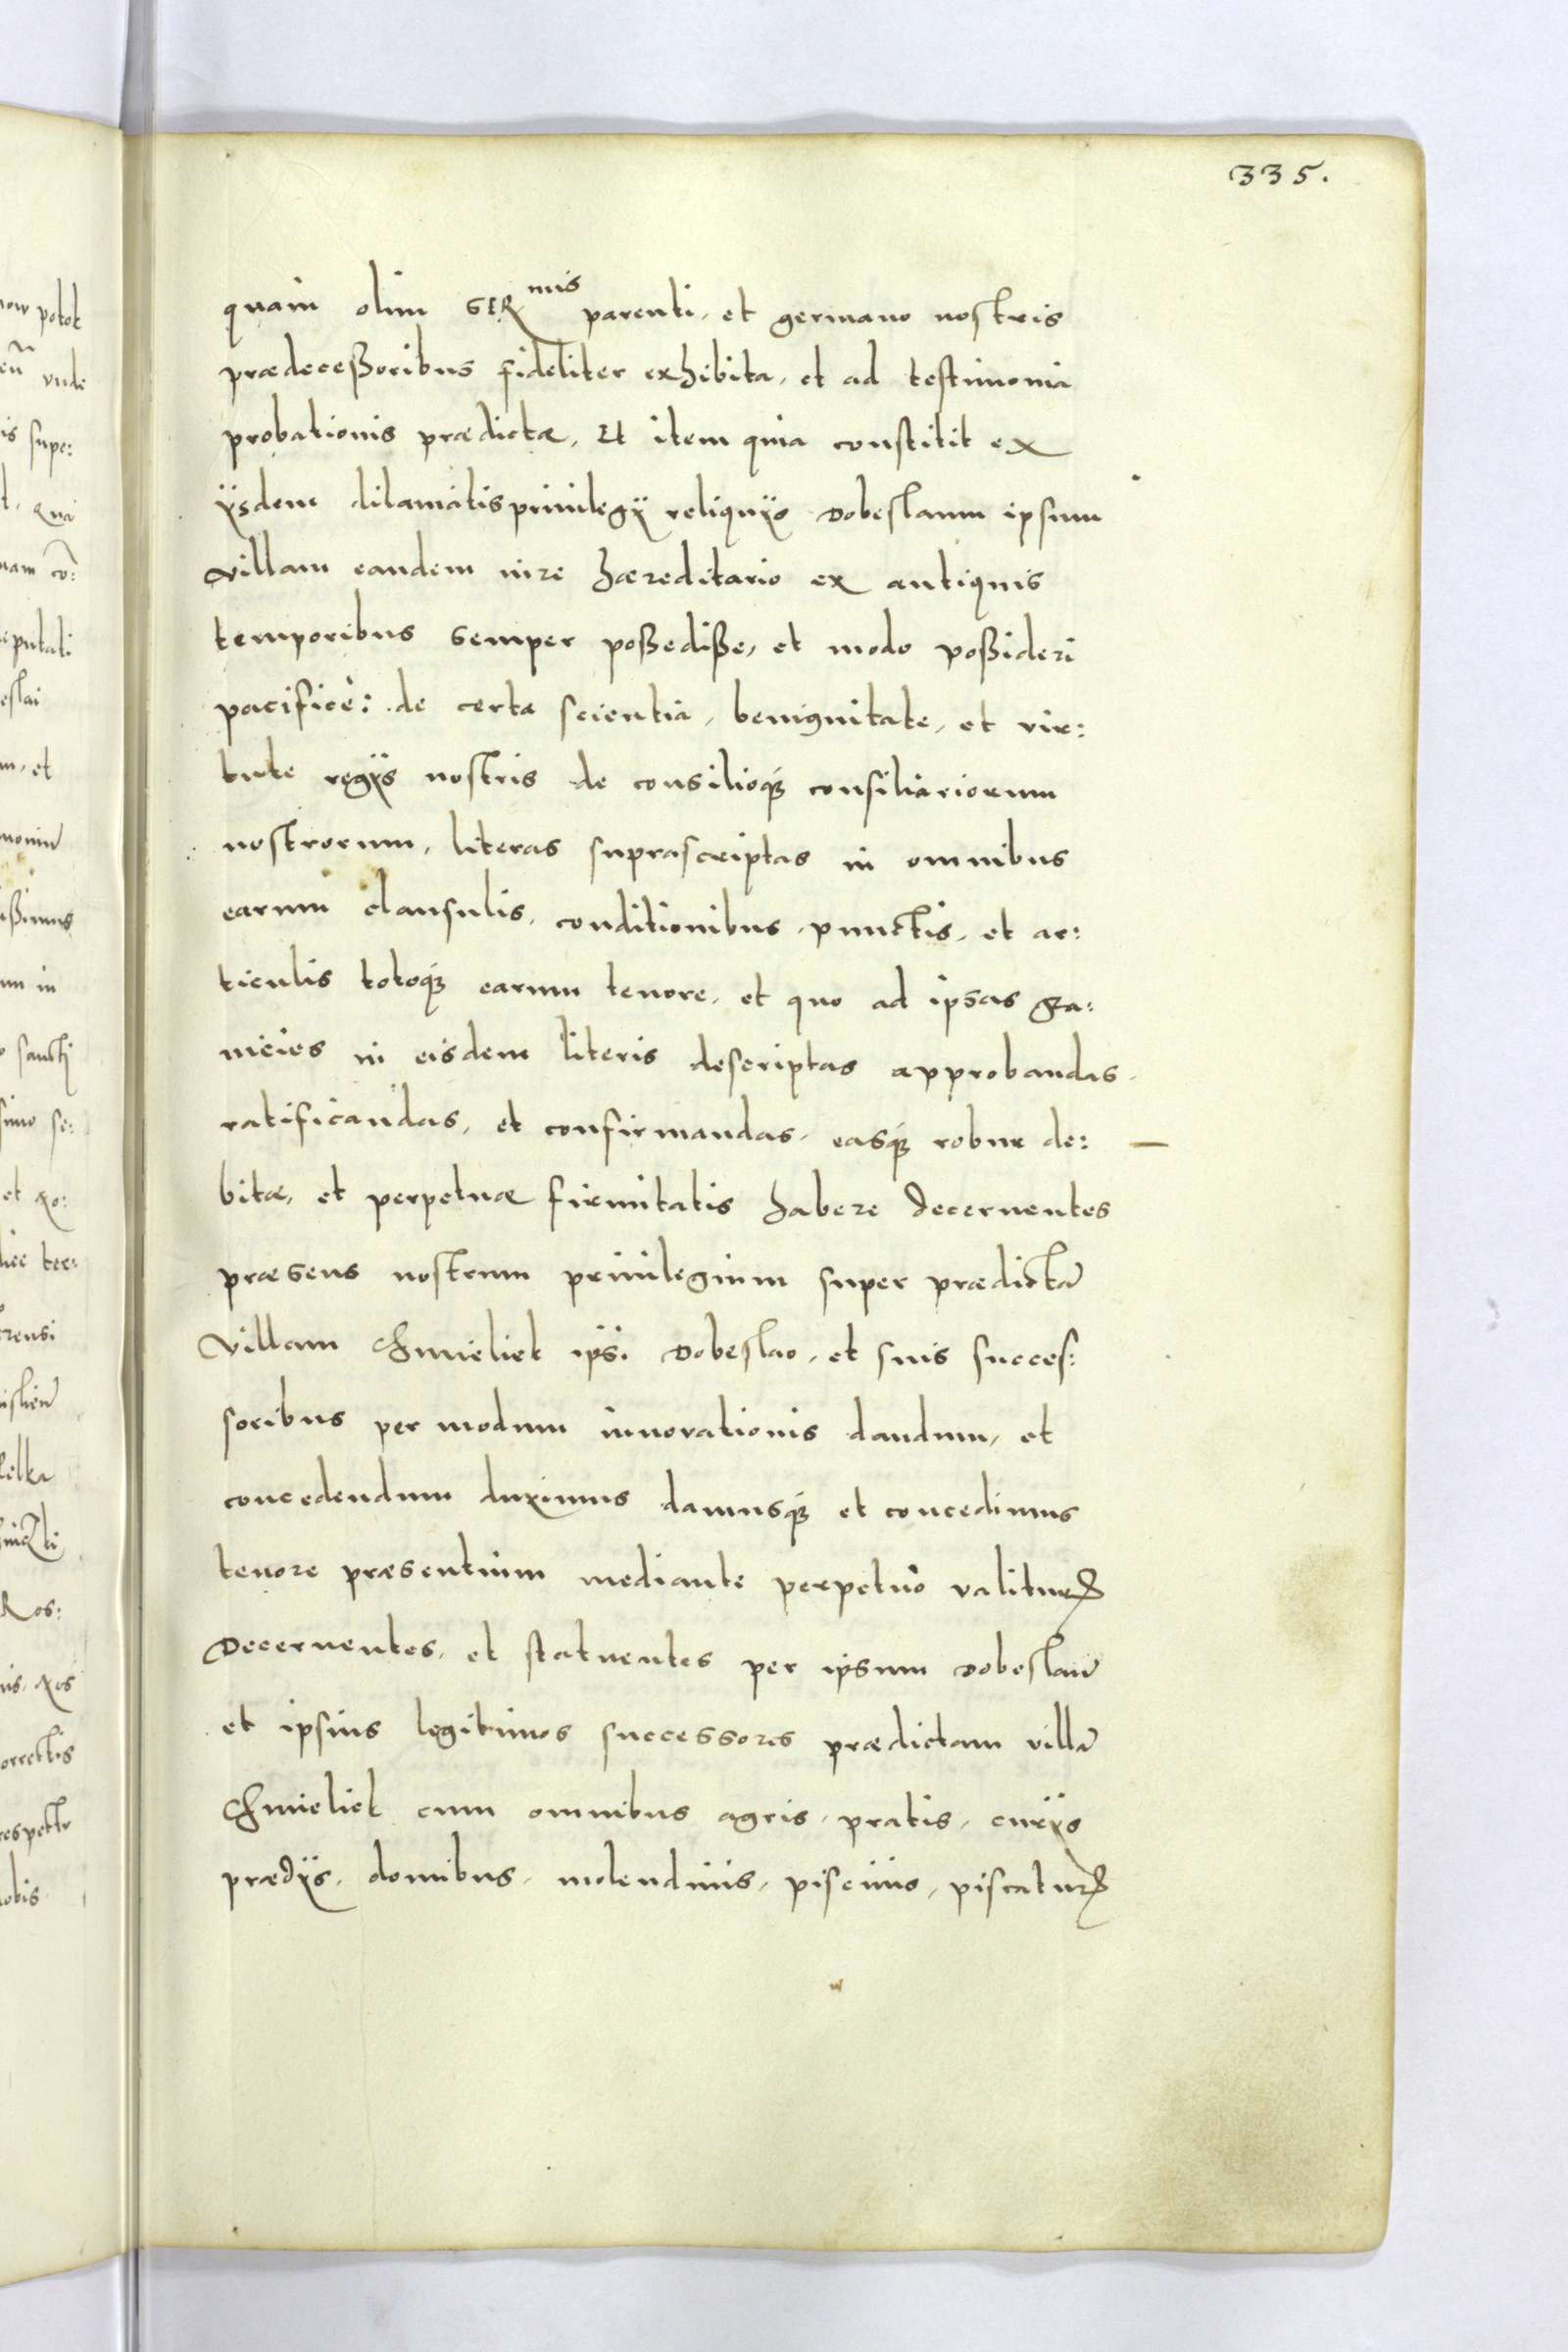 335.
quam olim SERmis parenti, et germano nostris
prædeceßoribus fideliter exhibita, et ad testimonia
probationis prædictæ, Et item quia constitit ex
ÿsdem dilaniatis priuilegÿ reliquÿs Dobeslaum ipsum
villam eandem iure hæreditario ex antiquis
temporibus semper poßediße, et modo poßideri
pacificè: de certa scientia, benignitate, et vir:
tute regÿs nostris de consilioqȝ consiliariorum
nostrorum, literas suprascriptas in omnibus
earum clausulis, conditionibus, punctis, et ar:
ticulis totoqȝ earum tenore, et quo ad ipsas gra:
nicies in eisdem literis descriptas approbandas,
ratificandas, et confirmandas, easqȝ robur de:
bitæ, et perpetuæ firmitatis habere decernentes
præsens nostrum priuilegium super prædictã
villam Chmieliek ipsi Dobeslao, et suis succes:
soribus per modum innovationis dandum, et
concedendum duximus damusqȝ et concedimus
tenore præsentium mediante perpetuò valiturꝝ
Decernentes, et statuentes per ipsum Dobeslaũ
et ipsius legitimos successores prædictam villã
Chmieliek cum omnibus agris, pratis, curÿs
prædÿs, domibus, molendinis, piscinis, piscaturꝝ